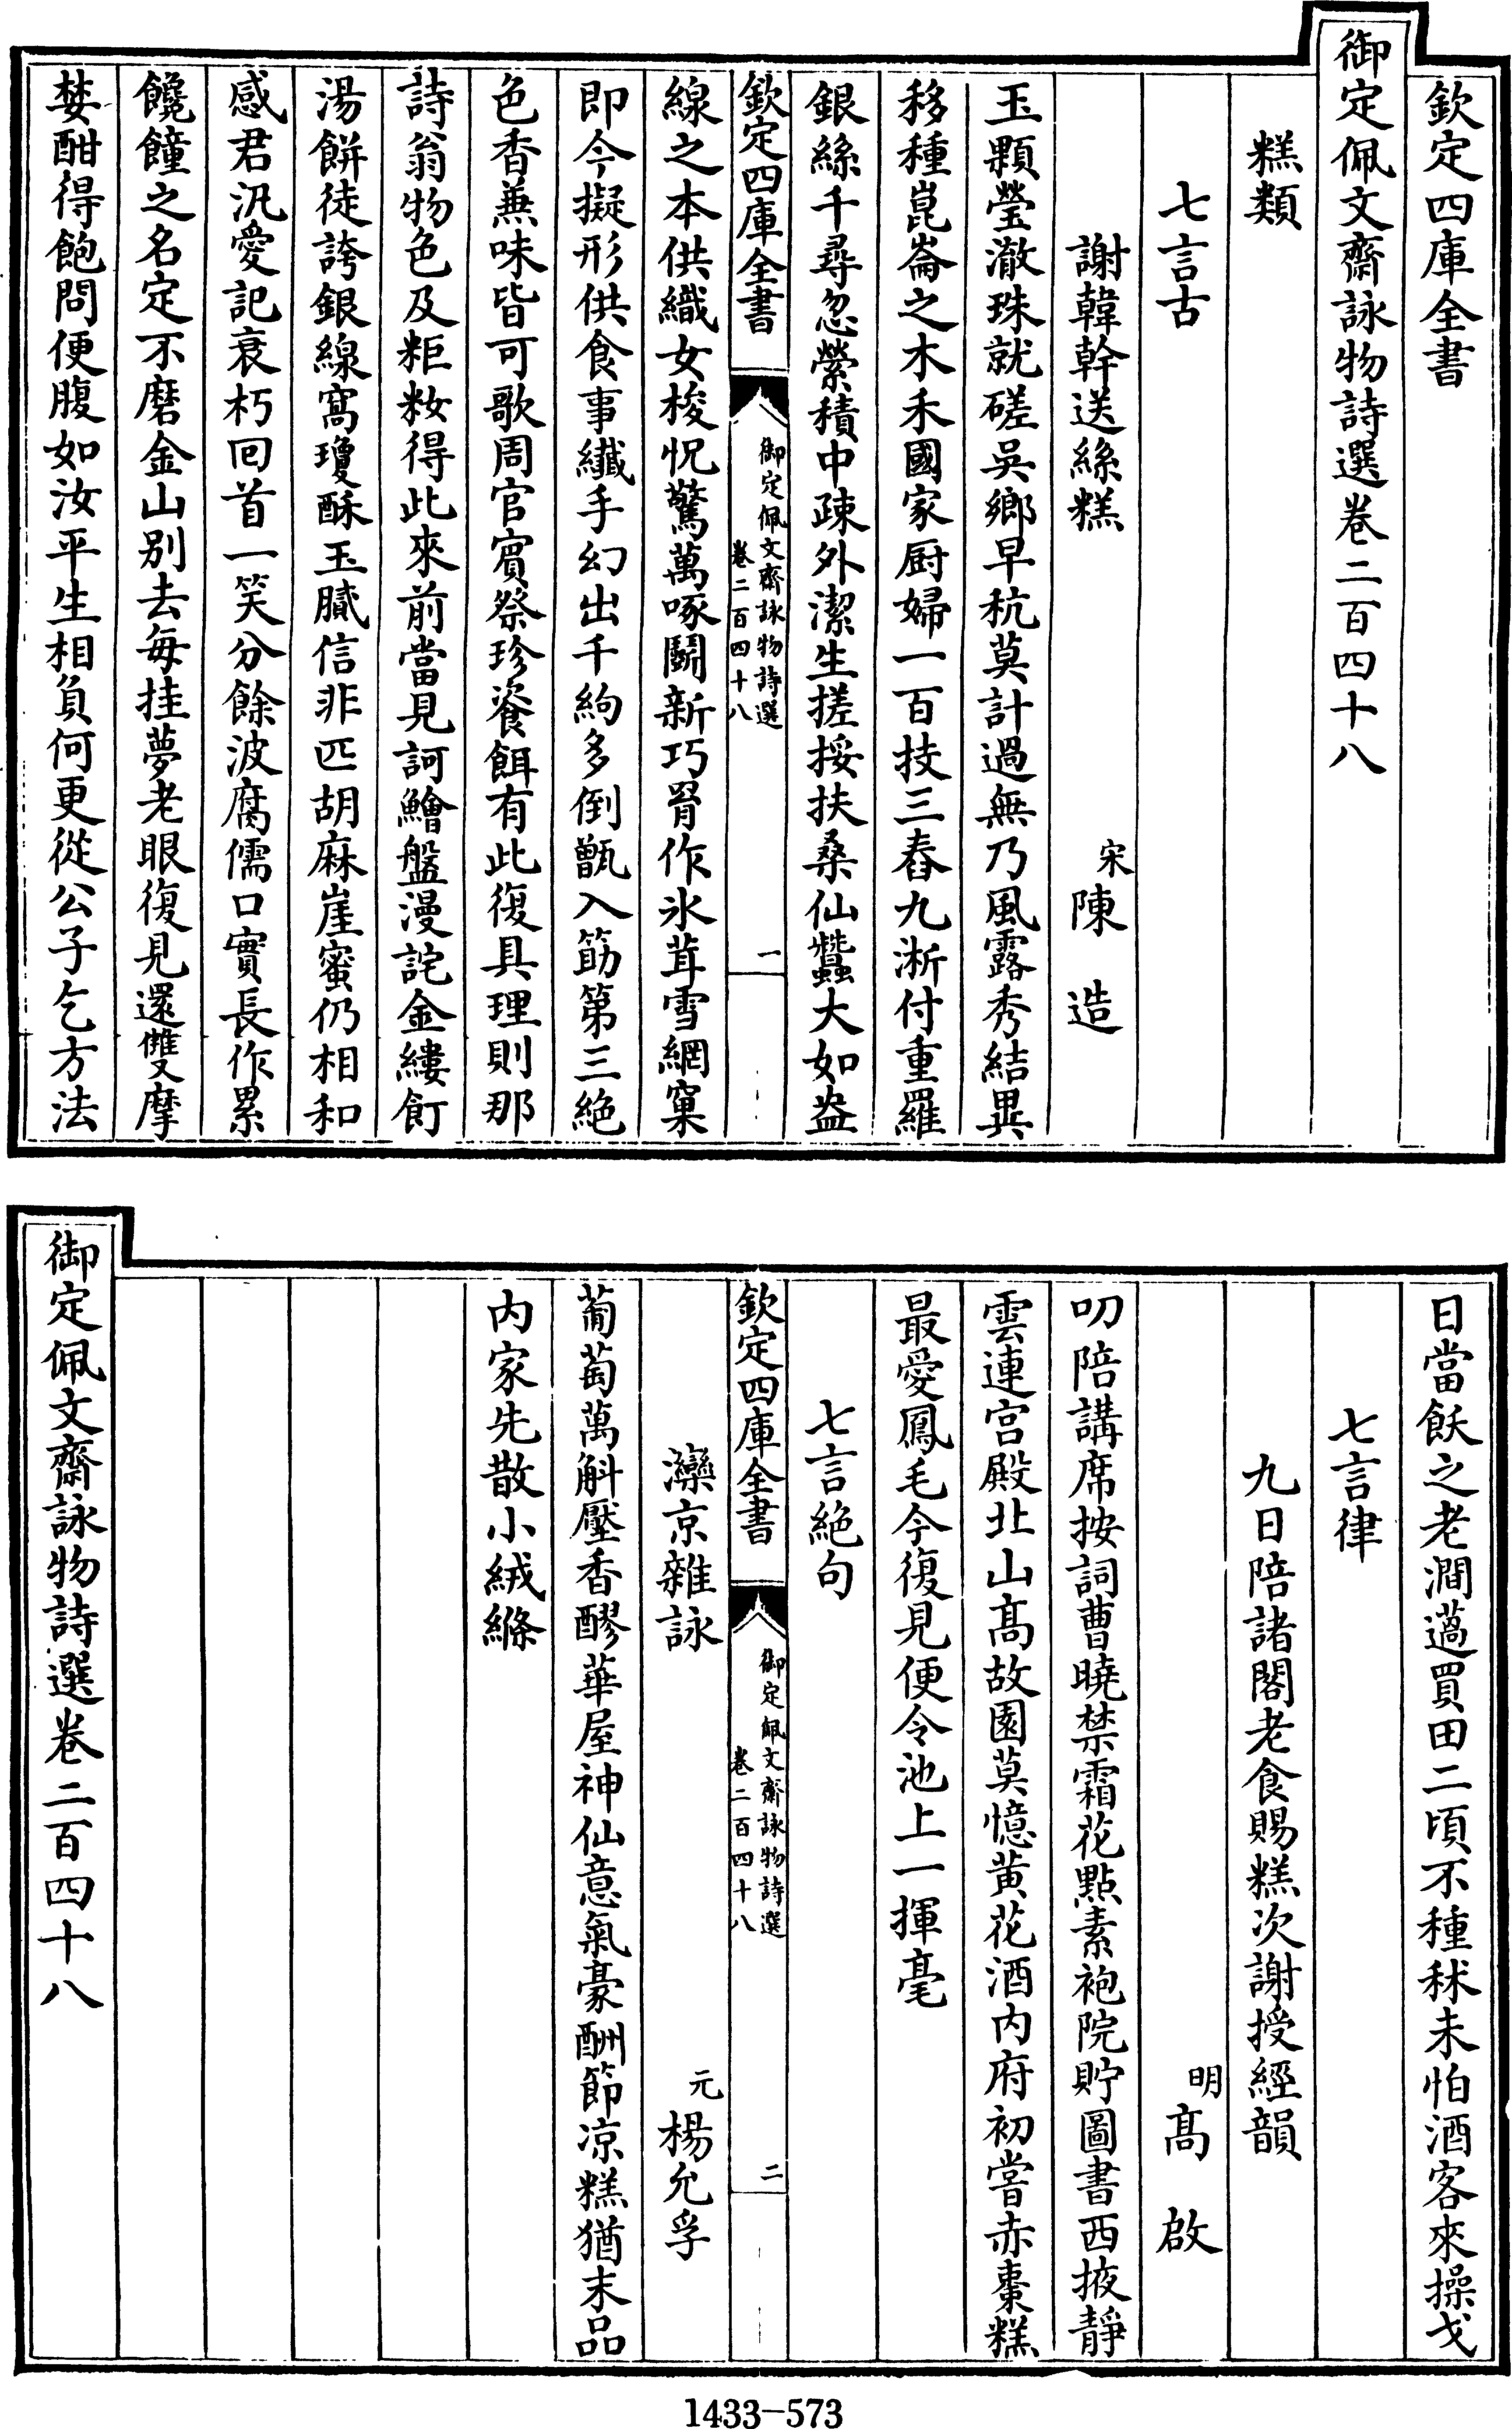 欽定四庫全書
御定佩文齋詠物詩選卷二百四十八
糕類
七言古
謝韓幹送絲糕
宋陳造
玉顆瑩澈珠就磋吳鄉早秔莫計過無乃風露秀結異
移種崑崙之木禾國家厨婦一百技三舂九淅付重羅
銀絲千尋忽縈積中疎外潔生搓挼扶桑仙蠶大如盎
欽定四庫全書
御定佩文齋詠物詩選
卷二百四十八
一
線之本供織女梭怳驚萬啄鬬新巧胷作氷茸雪網窠
即今擬形供食事纎手幻出千絇多倒甑入筯第三絶
色香兼味皆可歌周官賔祭珍餈餌有此復具理則那
詩翁物色及粔籹得此來前當見訶鱠盤漫詫金縷飣
湯餅徒誇銀線窩瓊酥玉膩信非匹胡麻崖蜜仍相和
感君汎愛記衰朽回首一笑分餘波腐儒口實長作累
饞饞之名定不磨金山别去每挂夢老眼復見還雙摩
婪酣得飽問便腹如汝平生相負何更從公子乞方法
日當飫之老澗薖買田二頃不種秫未怕酒客來操戈
七言律
九日陪諸閣老食賜糕次謝授經韻
明髙啟
叨陪講席按詞曹曉禁霜花點素袍院貯圖書西掖靜
雲連宫殿北山髙故園莫憶黄花酒内府初嘗赤棗糕
最愛鳳毛今復見便令池上一揮毫
七言絶句
欽定四庫全書
御定佩文齋詠物詩選
卷二百四十八
二
灤京雜詠
元楊允孚
葡萄萬斛壓香醪華屋神仙意氣豪酬節凉糕猶末品
内家先散小絨縧
御定佩文齋詠物詩選卷二百四十八
1433-573